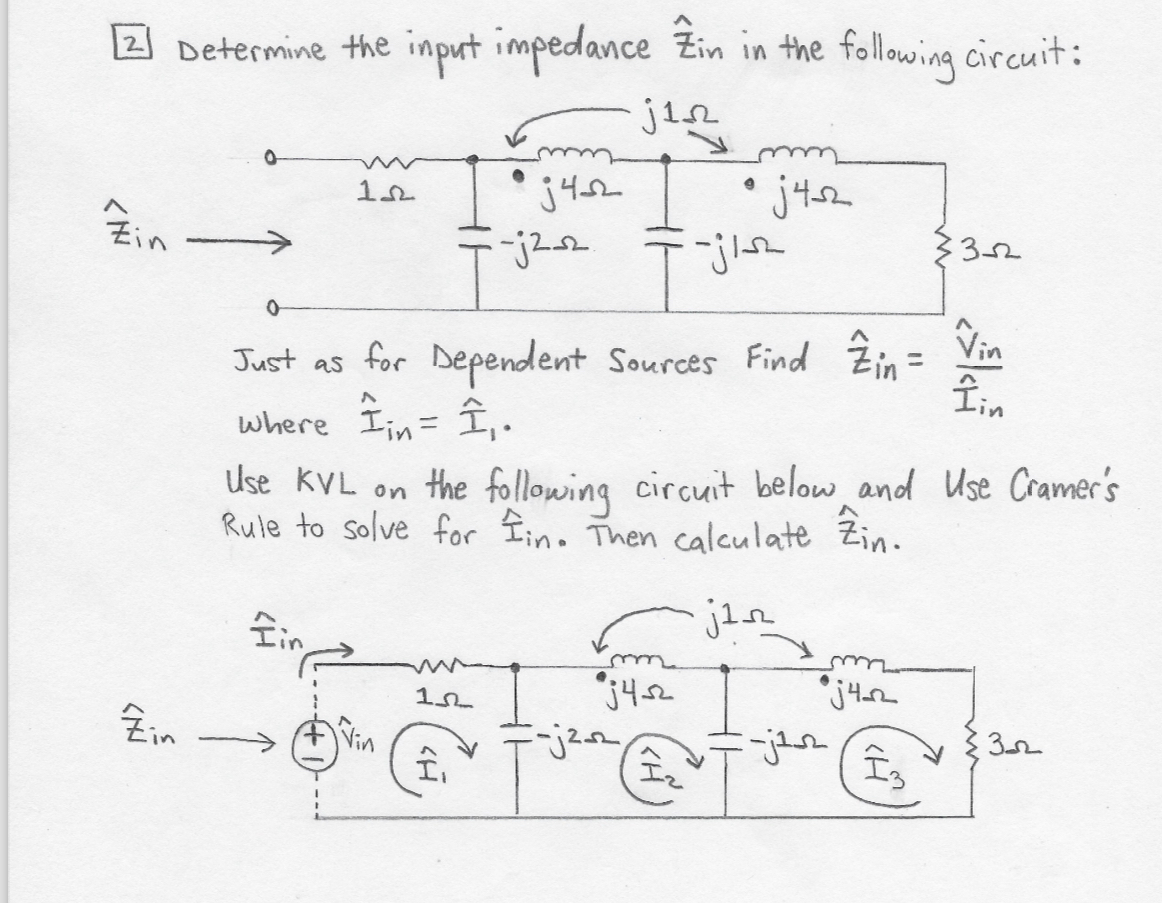 2 Determine the input impedance Ẑin in the following circuit:
j1Ω
1Ω
j4Ω
j4Ω
Ẑin
-j2Ω
-j1Ω
3Ω
Just as for Dependent Sources Find Ẑin = V̂in / Îin
where Îin = Î₁.
Use KVL on the following circuit below and Use Cramer's
Rule to solve for Îin. Then calculate Ẑin.
Îin
j1Ω
1Ω
j4Ω
j4Ω
Ẑin
+
−
V̂in
Î₁
-j2Ω
Î₂
-j1Ω
Î₃
3Ω